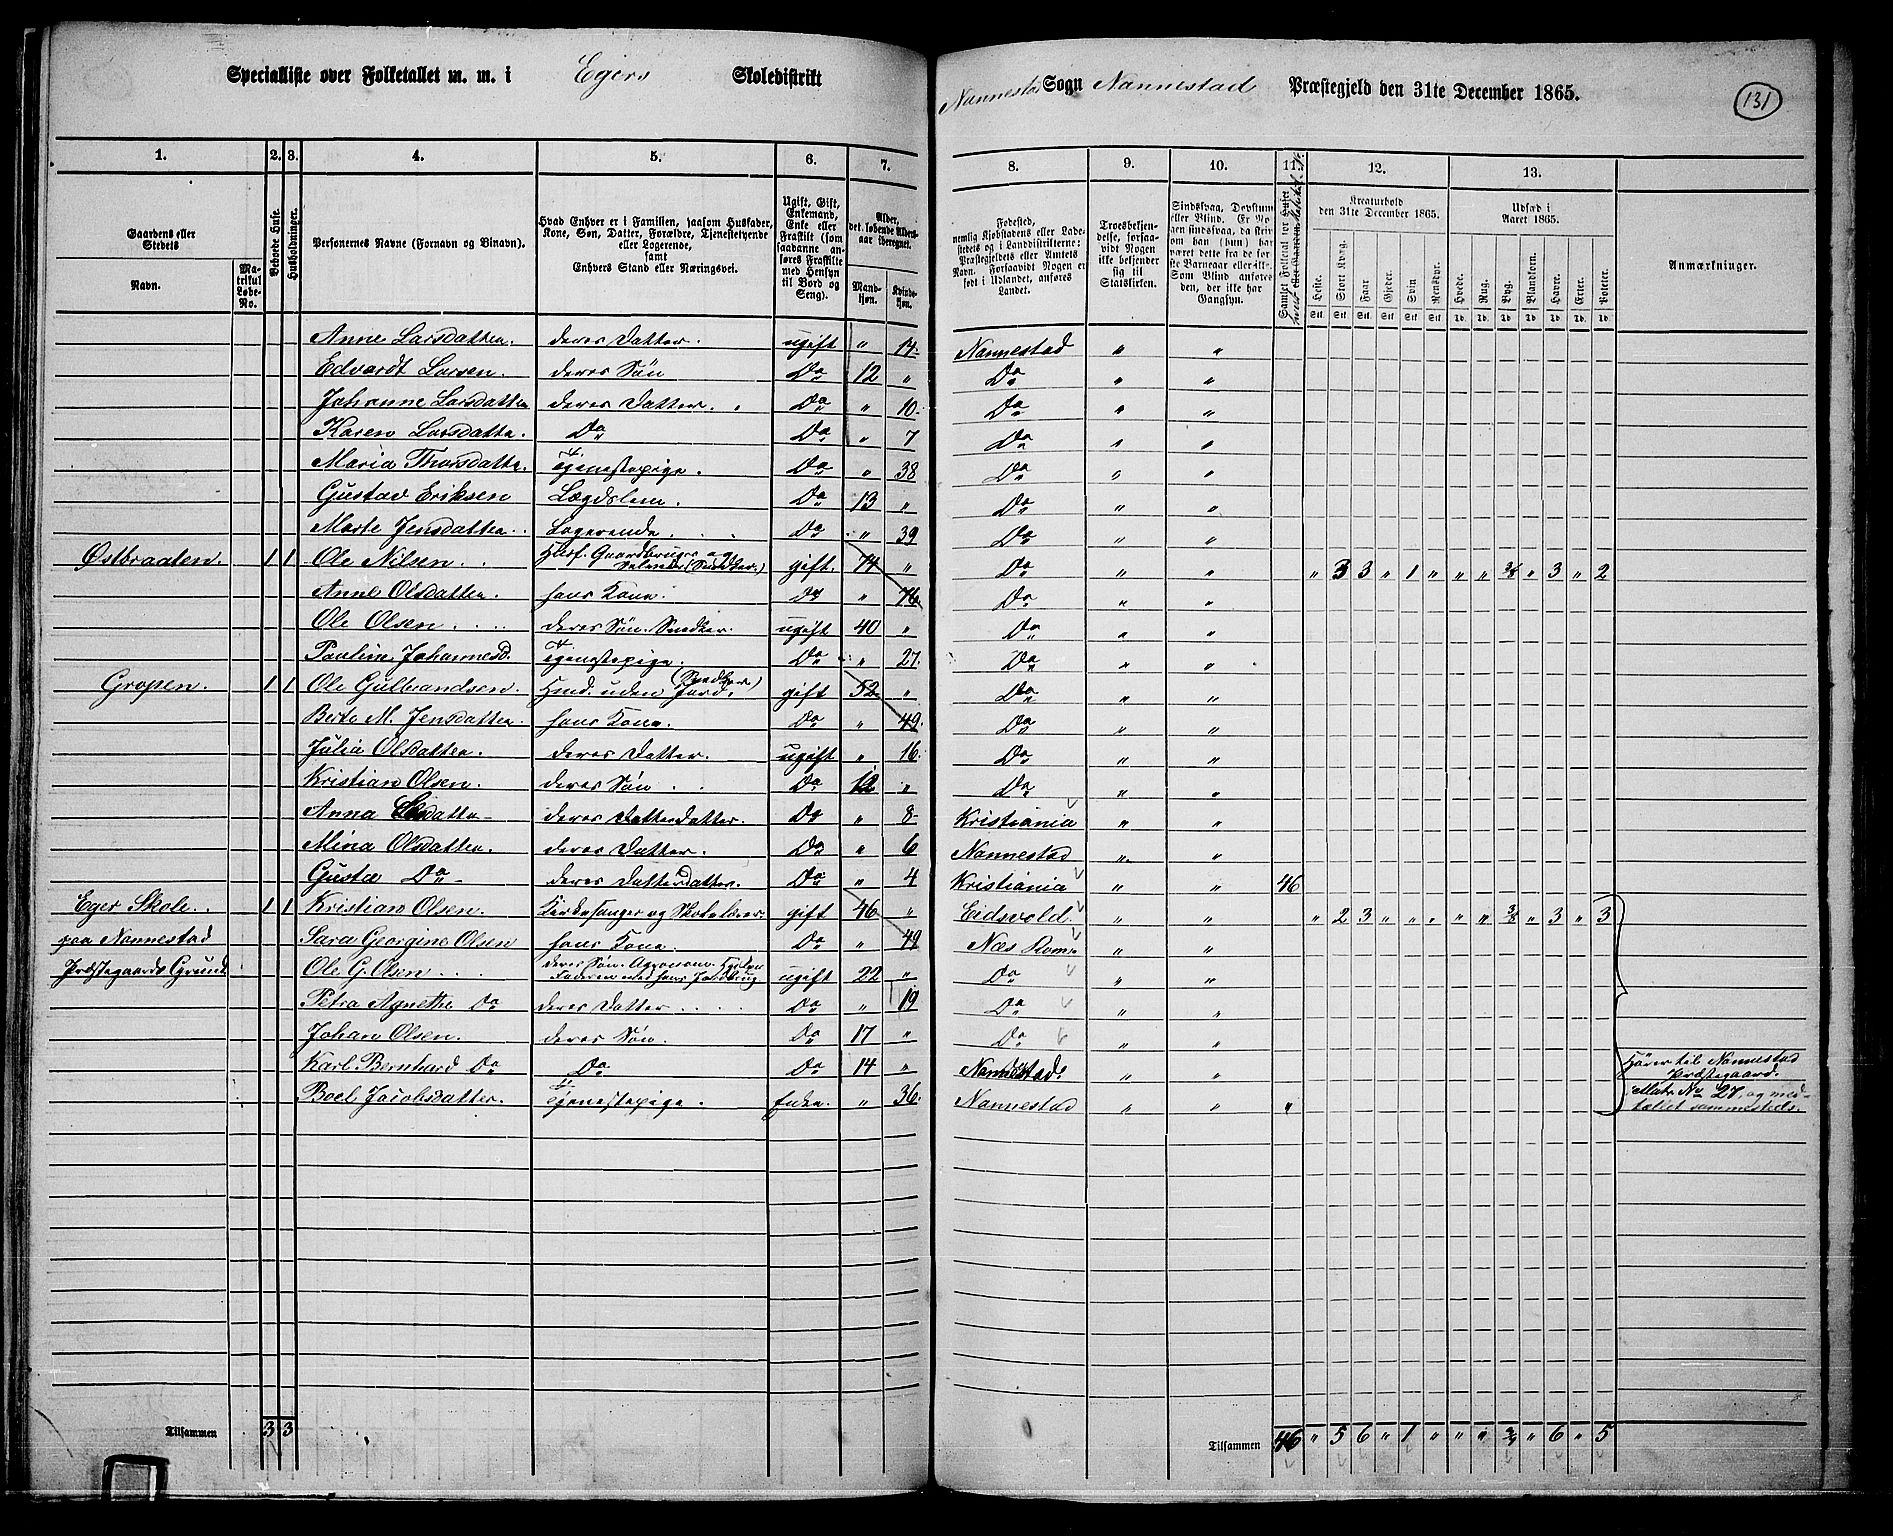 Specialliste over Folketallet m. m. i Egers Skoledistrikt
Nannestad Sogn Nannestad Præstegjeld den 31te December 1865.
131
1. 2. 3. 4. 5. 6. 7. 8. 9. 10. 11. 12. 13.
Gaardens eller Stedets
Navn.
Matrikul Løbe-No.
Beboede Huse.
Husholdninger.
Personernes Navne (Fornavn og Tilnavn).
Hvad Enhver er i Familien, saasom Husfader, Kone, Søn, Datter, Forældre, Tjenestetyende eller Logerende, samt Enhvers Stand eller Næringsvei.
Ugift, Gift, Enkemand, Enke eller Fraskilt (som saadanne anføres Fraskilte med Hensyn til Bord og Seng).
Alder, det løbende Alders-aar iberegnet.
Mandkjøn. Kvindekjøn.
Fødested, nemlig Kjøbstadens eller Ladestedets og i Landdistrikterne: Præstegjeldets eller Amtets Navn. Forsaavidt Nogen er født i Udlandet, anføres Landet.
Troesbekjendelse, forsaavidt Nogen ikke bekjender sig til Statskirken.
Kreaturhold den 31te December 1865.
Heste. Stort Kvæg. Faar. Gjeder. Svin. Rensdyr.
Udsæd i Aaret 1865.
Hvede. Rug. Byg. Blandkorn. Havre. Erter. Poteter.
Anmærkninger.
Anne Larsdatter. deres Datter. ugift " 14. Nannestad " "
Edvardt Larsen. deres Søn Do 12 " Do " "
Johanne Larsdatter deres Datter. Do " 10. Do " "
Karen Larsdatter. Do Do " 7 Do " "
Maria Thorsdatter. Tjenestepige. Do " 38 Do " "
Gustav Eriksen Lægdslem. Do 13 " Do " "
Marte Jensdatter. Logerende. Do " 39 Do " "
Østbraaten. 1 1 Ole Nilsen. Husf. Gaardbruger og (Snedker.) gift. 74 " Do " " " 3 3 " 1 " " " 3/8 " 3 " 2
Anne Olsdatter. hans Kone. Do " 76. Do " "
Ole Olsen. deres Søn. Snedker. ugift 40 " Do " "
Pauline Johannesd. Tjenestepige. Do " 27. Do " "
Gropen. 1 1 Ole Gulbrandsen. Husd. uden Jord. (Snedker.) gift 52 " Do " "
Berte M. Jensdatter. hans Kone. Do " 49. Do " "
Julia Olsdatter. deres Datter. ugift " 16. Do " "
Kristian Olsen. deres Søn Do 12 " Do " "
Anna deres Datterdatter. Do " 8 Kristiania " "
Mina Olsdatter. deres Datter. Do " 6 Nannestad " "
Gusta Do deres Datterdatter. Do " 4 Kristiania " " 46
Eger Skole. 1 1 Kristian Olsen. Kirkesanger og Skolelærer. gift 46 " Eidsvold. " " " 2 3 " " " " " 3/8 " 3 " 3
paa Nannestad Sara Georgine Olsen hans Kone. Do " 49 Næs Rom. " "
Præstegaards Grund Ole G. Olsen deres Søn. Agronom. Hjelper Faderen med hans Jordbrug. ugift 22 " Do " "
Petra Agnethe Do deres Datter Do " 19 Do " "
Johan Olsen. deres Søn. Do 17 " Do " "
Karl Bernhard Do Do Do 14 " Nannestad. " "
Boel Jacobsdatter. Tjenestepige. Enke. " 36. Nannestad " " "
Hører til Nannestad
Præstegaard.
Matr. No 27, og med-
tællet sammesteds.
Tilsammen 3 3
Tilsammen 46 " 5 6 " 1 " " " 3/4 " 6 " 5